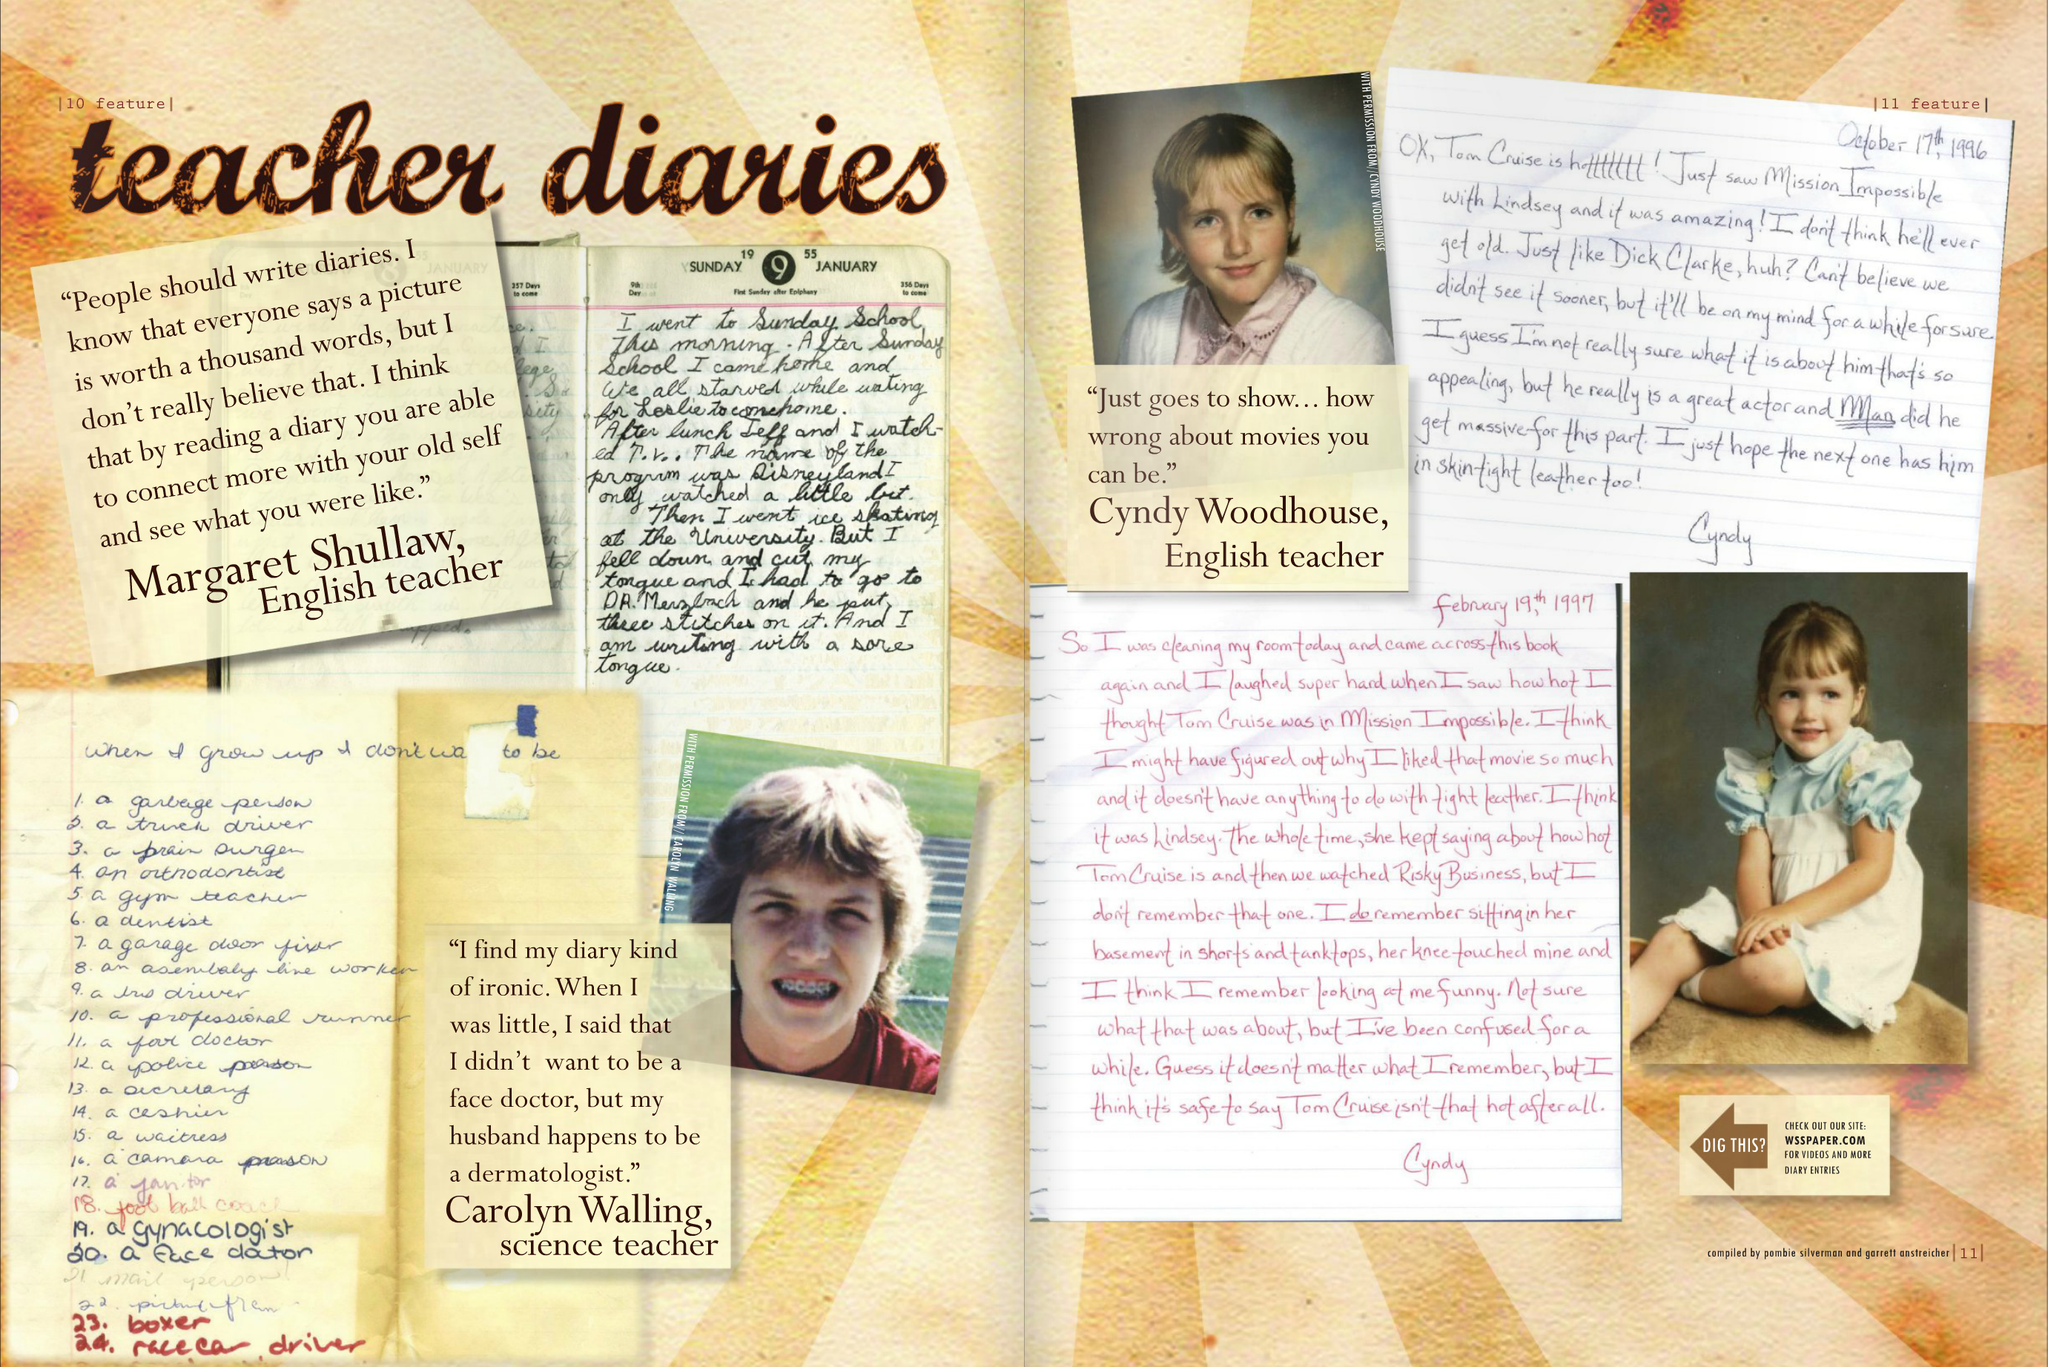 |10 feature|
teacher diaries
"People should write diaries. I
know that everyone says a picture
is worth a thousand words, but I
don't really believe that. I think
that by reading a diary you are able
to connect more with your old self
and see what you were like."
Margaret Shullaw,
English teacher
JANUARY
357 Days
to come
SUNDAY 19 9 55 JANUARY
9th
Day
First Sunday after Epiphany
356 Days
to come
I went to Sunday School
This morning. After Sunday
School I came home and
We all starved while wating
for Leslie to come home.
After lunch Jeff and I watch-
ed T.V.. The name of the
program was Disneyland I
only watched a little bit.
Then I went ice skating
at the University. But I
fell down and cut my
tongue and I had to go to
DR. Merzbach and he put
three stitches on it. And I
am writing with a sore
tongue.
when I grow up I don't wa to be
1. a garbage person
2. a truck driver
3. a brain surgen
4. an orthodontist
5. a gym teacher
6. a dentist
7. a garage door fixer
8. an asembaly line worker
9. a bus driver
10. a professional runner
11. a foot doctor
12. a police person
13. a secretary
14. a cashier
15. a waitress
16. a camara person
17. a janitor
18. foot ball coach
19. a gynacologist
20. a face doctor
21 mail person
22.
23. boxer
24. race car driver
WITH PERMISSION FROM// CAROLYN WALLING
"I find my diary kind
of ironic. When I
was little, I said that
I didn't want to be a
face doctor, but my
husband happens to be
a dermatologist."
Carolyn Walling,
science teacher
|11 feature|
WITH PERMISSION FROM//CYNDY WOODHOUSE
"Just goes to show... how
wrong about movies you
can be."
Cyndy Woodhouse,
English teacher
October 17th, 1996
OK, Tom Cruise is hottttttt! Just saw Mission Impossible
with Lindsey and it was amazing! I don't think he'll ever
get old. Just like Dick Clarke, huh? Can't believe we
didn't see it sooner, but it'll be on my mind for a while for sure
I guess I'm not really sure what it is about him that's so
appealing, but he really is a great actor and Man did he
get massive for this part. I just hope the next one has him
in skin-tight leather too!
Cyndy
february 19th, 1997
So I was cleaning my room today and came across this book
again and I laughed super hard when I saw how hot I
thought Tom Cruise was in Mission Impossible. I think
I might have figured out why I liked that movie so much
and it doesn't have anything to do with tight leather. I think
it was Lindsey. The whole time, she kept saying about how hot
Tom Cruise is and then we watched Risky Business, but I
don't remember that one. I do remember sitting in her
basement in shorts and tanktops, her knee touched mine and
I think I remember looking at me funny. Not sure
what that was about, but I've been confused for a
while. Guess it doesn't matter what I remember, but I
think it's safe to say Tom Cruise isn't that hot after all.
Cyndy
DIG THIS?
CHECK OUT OUR SITE:
WSSPAPER.COM
FOR VIDEOS AND MORE
DIARY ENTRIES
compiled by pombie silverman and garrett anstreicher |11|